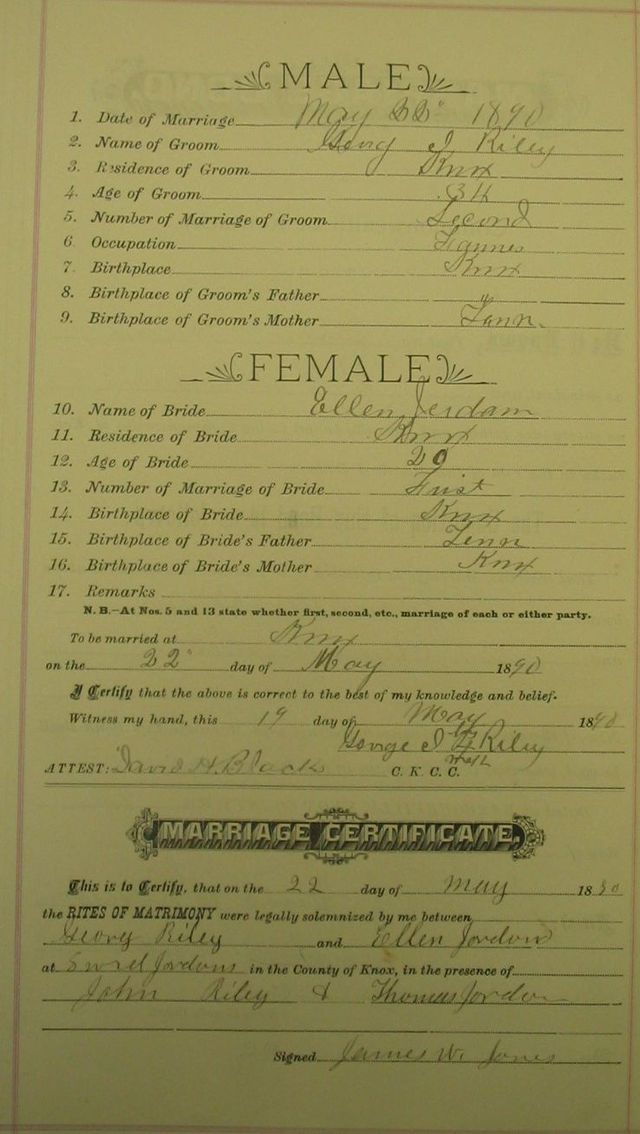 MALE
1. Date of Marriage May 22" 1890
2. Name of Groom Georg J Riley
3. Residence of Groom Knox
4. Age of Groom 34
5. Number of Marriage of Groom Second
6. Occupation
7. Birthplace Knox
8. Birthplace of Groom's Father "
9. Birthplace of Groom's Mother Tenn.
FEMALE
10. Name of Bride Ellen Jerdam
11. Residence of Bride Knox
12. Age of Bride 29
13. Number of Marriage of Bride First
14. Birthplace of Bride Knox
15. Birthplace of Bride's Father Tenn
16. Birthplace of Bride's Mother Knox
17. Remarks
N. B.—At Nos. 5 and 13 state whether first, second, etc., marriage of each or either party.
To be married at Knox
on the 22" day of May 1890
I Certify that the above is correct to the best of my knowledge and belief.
Witness my hand, this 19 day of May 1890
George J Riley
ATTEST: David H. Black C. K. C. C.
MARRIAGE CERTIFICATE.
This is to Certify, that on the 22 day of May 1890
the RITES OF MATRIMONY were legally solemnized by me between
Georg Riley and Ellen Jordon
at Jordons in the County of Knox, in the presence of
John Riley & Thomas Jordon
Signed James W. Jones